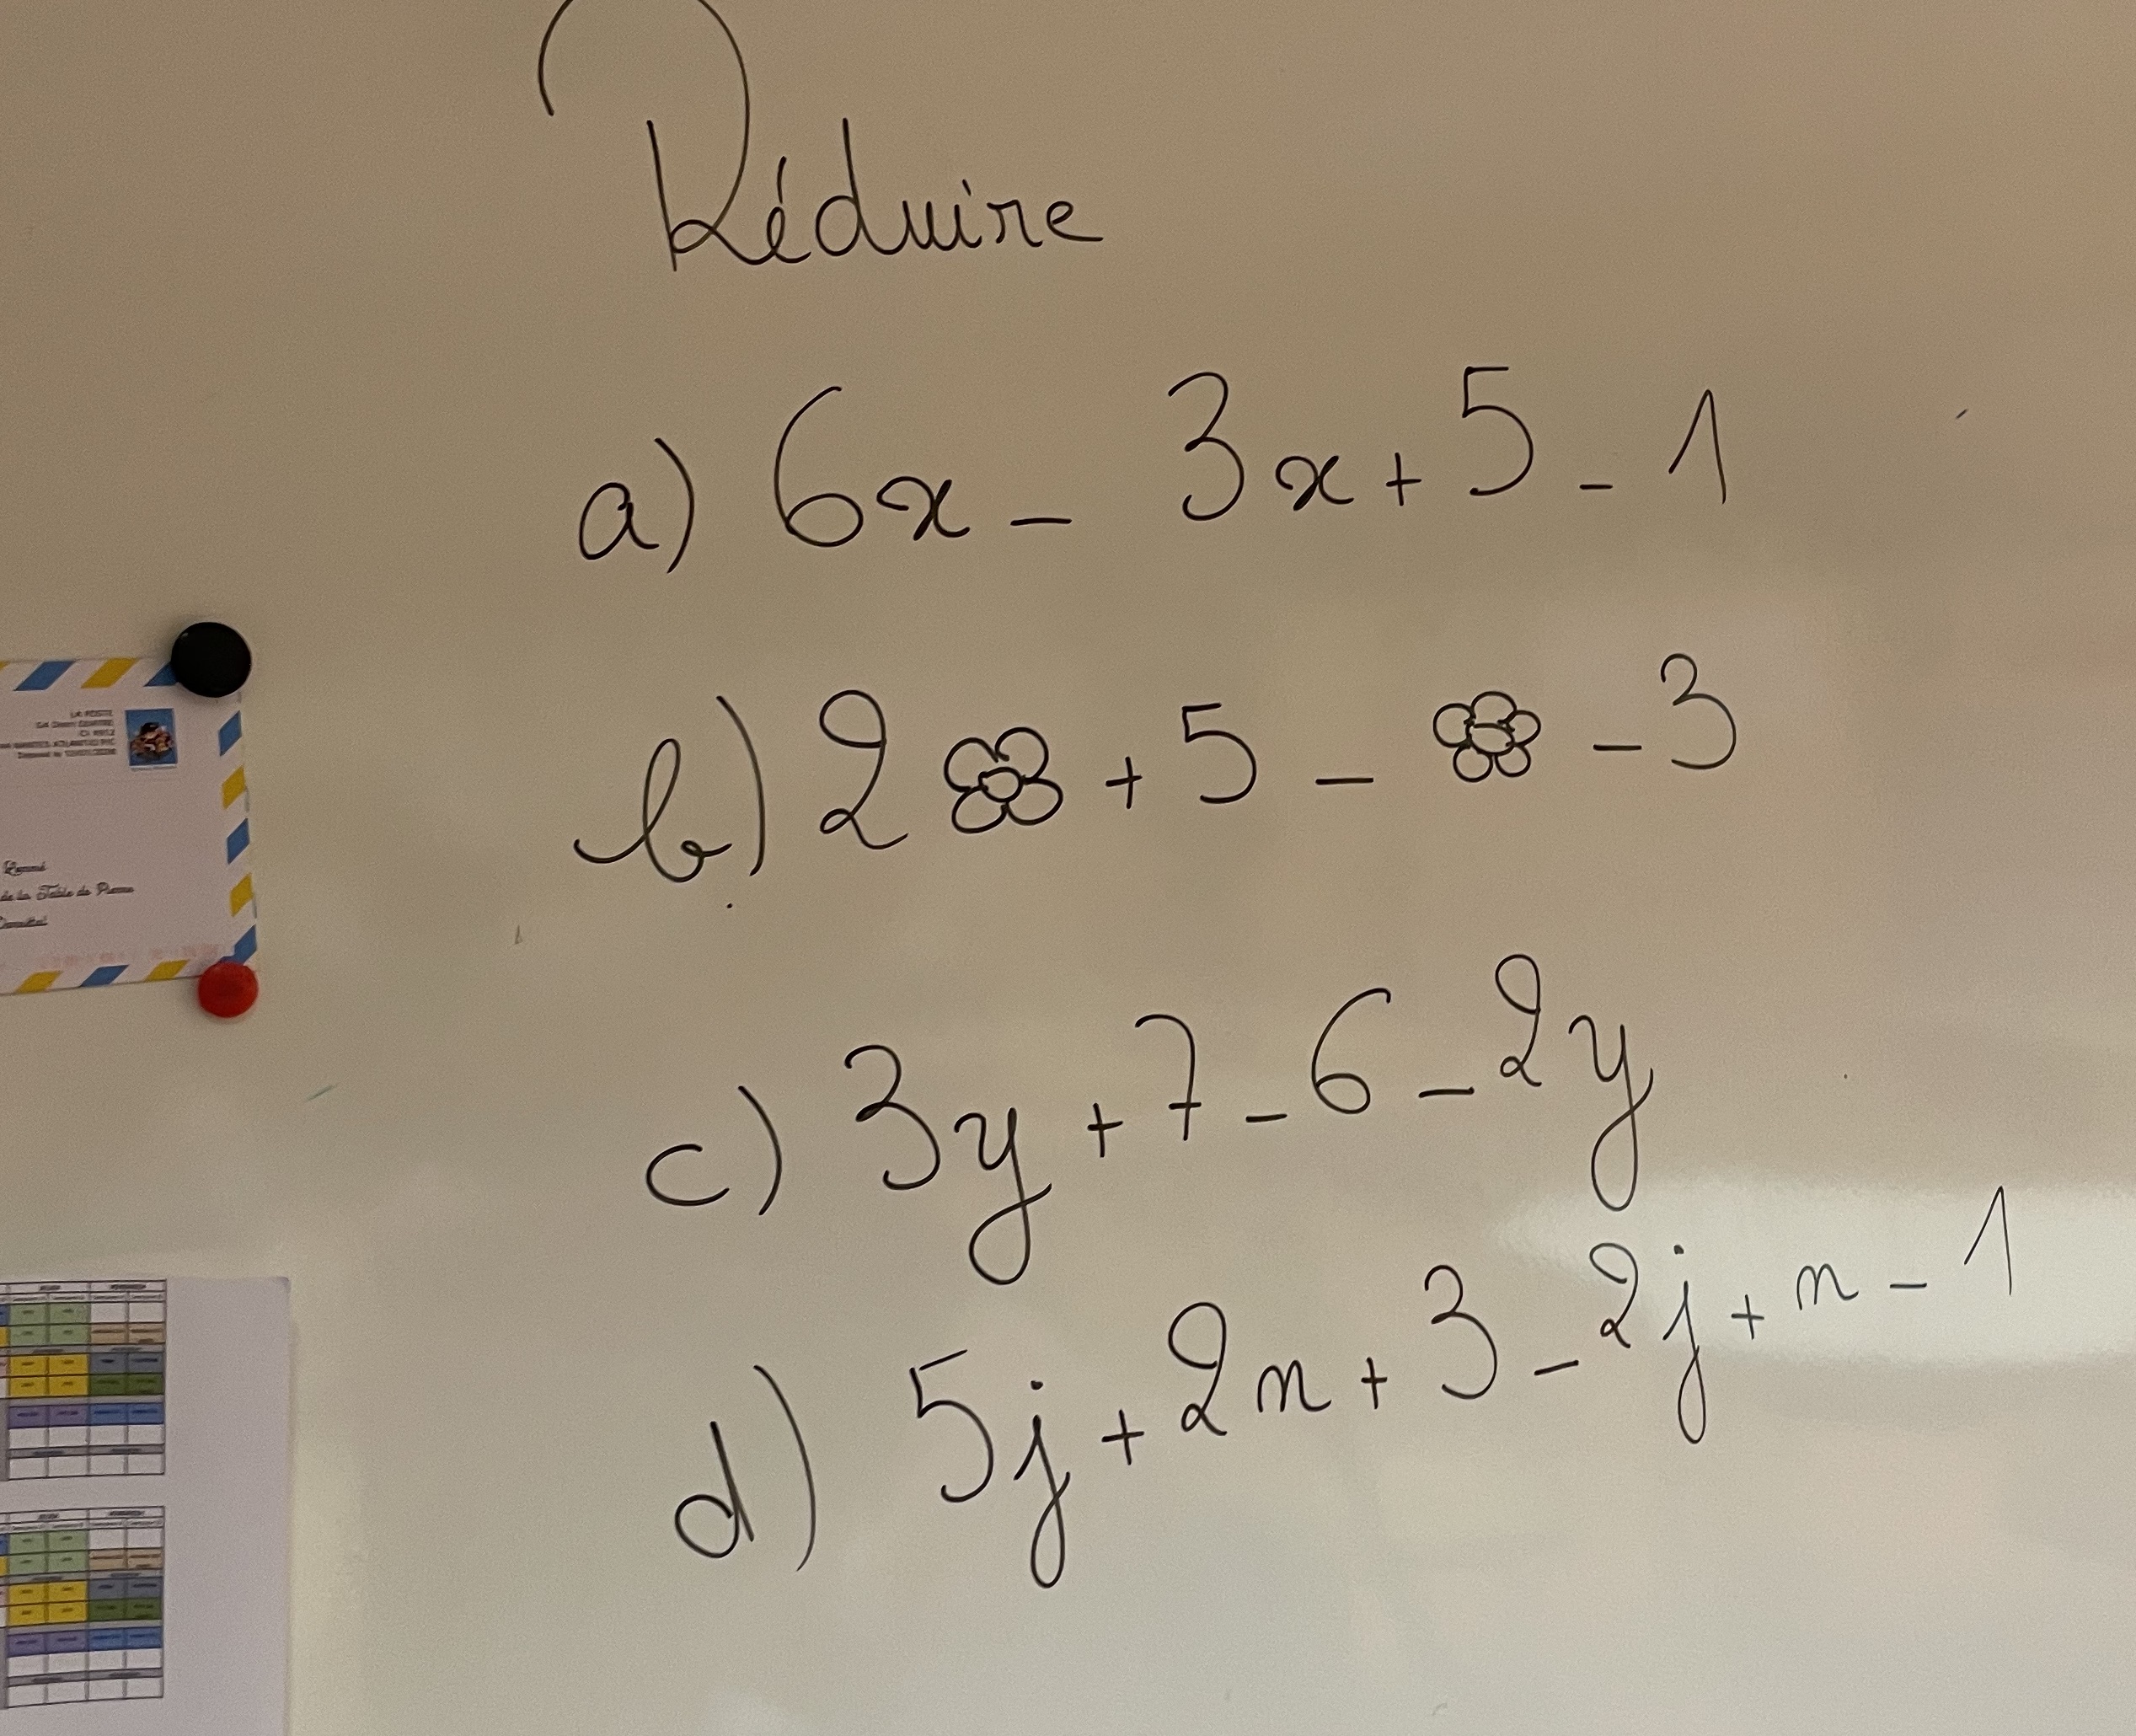 Réduire
a) 6x - 3x + 5 - 1
b) 2🌼 + 5 - 🌼 - 3
LA POSTE
c) 3y + 7 - 6 - 2y
de la Table de Pierre
d) 5j + 2n + 3 - 2j + n - 1